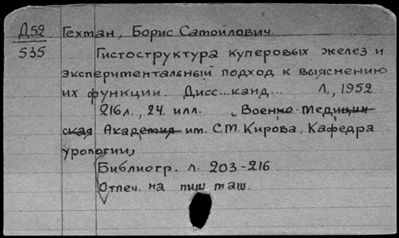 Д52 Гехтман, Борис Самойлович.
535 Гистоструктура куперовых желез и
экспериментальный подход к выяснению
их функции. Дисс...канд... Л., 1952
216л., 24. илл. Военно-Медицин
ская Академия им. С.М. Кирова, Кафедра
урологии,
Библиогр. л. 203-216
Отпеч. на пиш маш.